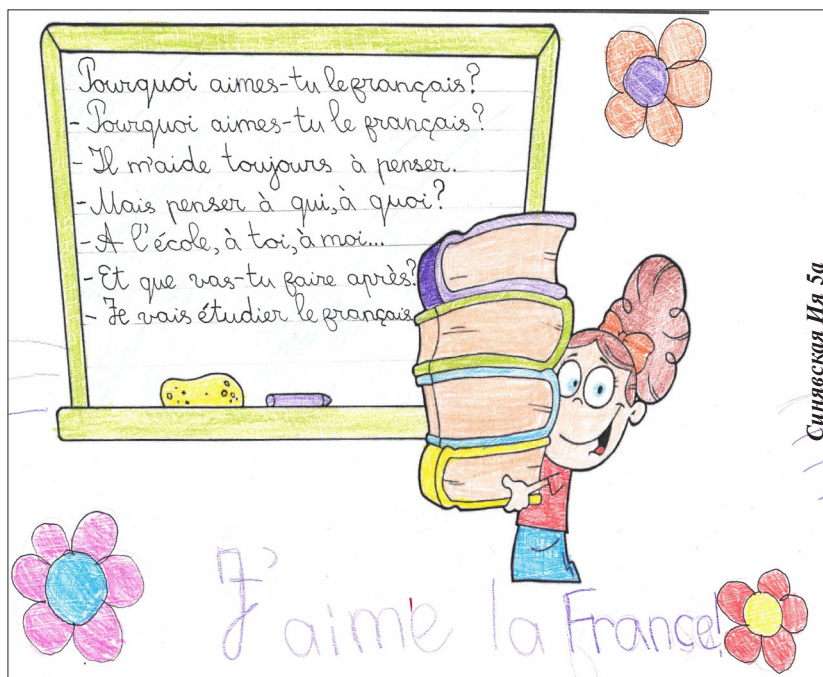 Pourquoi aimes-tu le français?
- Pourquoi aimes-tu le français?
- Il m'aide toujours à penser.
- Mais penser à qui, à quoi?
- A l'école, à toi, à moi...
- Et que vas-tu faire après?
- Je vais étudier le français.
J'aime la France!
Синявская Ия 5а